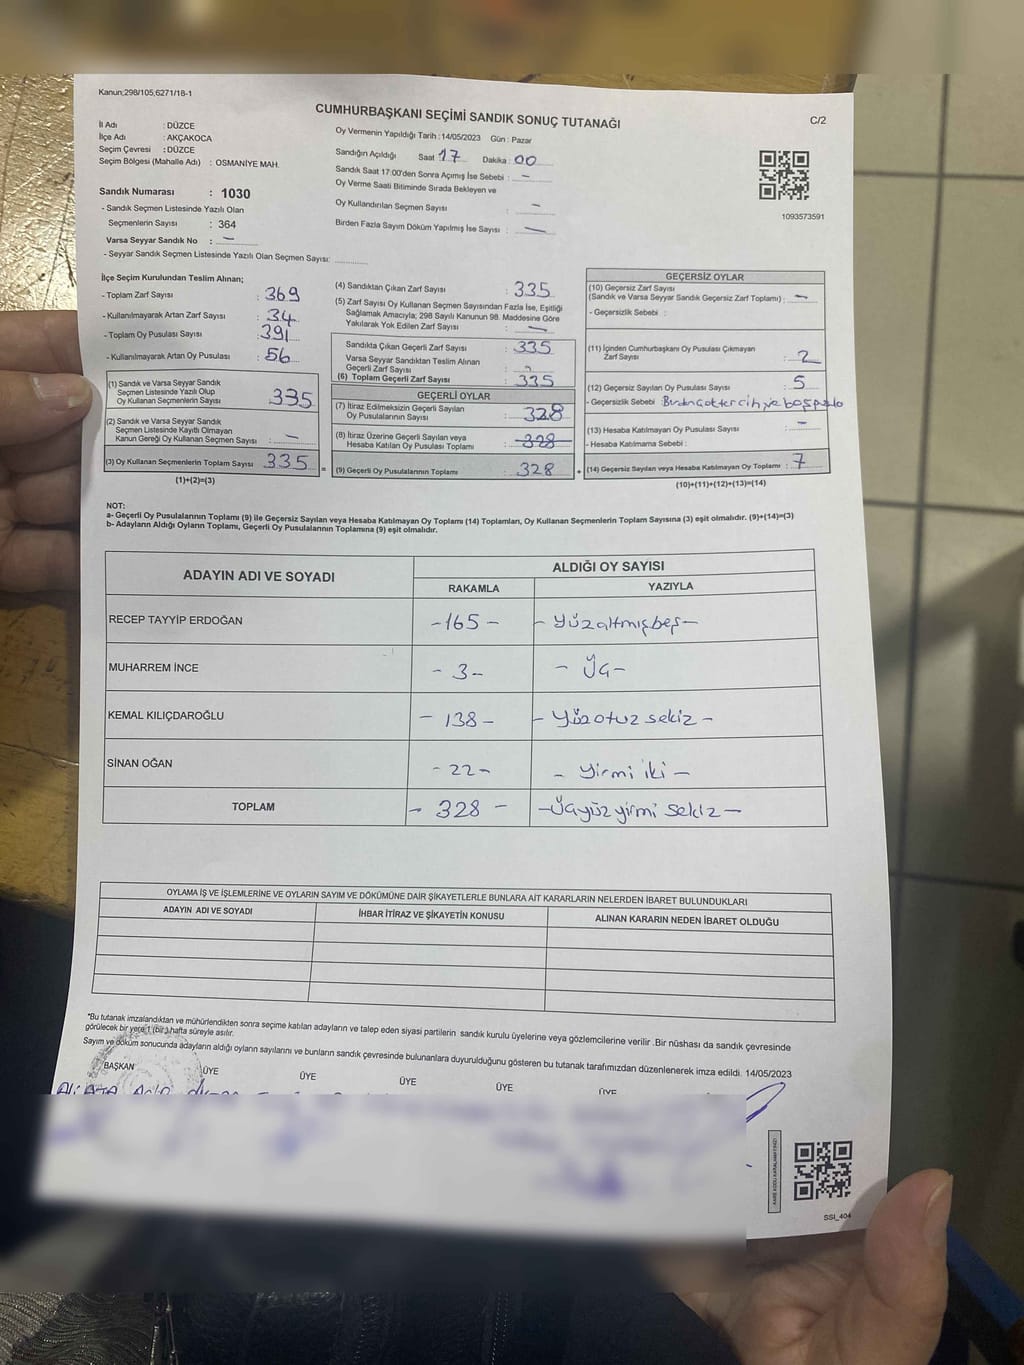 Kanun:298/105,6271/18-1
CUMHURBAŞKANI SEÇİMİ SANDIK SONUÇ TUTANAĞI
C/2
İl Adı : DÜZCE
İlçe Adı : AKÇAKOCA
Seçim Çevresi : DÜZCE
Seçim Bölgesi (Mahalle Adı) : OSMANİYE MAH.
Sandık Numarası : 1030
- Sandık Seçmen Listesinde Yazılı Olan
Seçmenlerin Sayısı : 364
Varsa Seyyar Sandık No : —
- Seyyar Sandık Seçmen Listesinde Yazılı Olan Seçmen Sayısı:
Oy Vermenin Yapıldığı Tarih : 14/05/2023 Gün : Pazar
Sandığın Açıldığı Saat 17 Dakika : 00
Sandık Saat 17:00'den Sonra Açımış İse Sebebi : —
Oy Verme Saati Bitiminde Sırada Bekleyen ve
Oy Kullandırılan Seçmen Sayısı : —
Birden Fazla Sayım Döküm Yapılmış İse Sayısı : —
1093573591
İlçe Seçim Kurulundan Teslim Alınan;
- Toplam Zarf Sayısı : 369
- Kullanılmayarak Artan Zarf Sayısı : 34
- Toplam Oy Pusulası Sayısı : 391
- Kullanılmayarak Artan Oy Pusulası : 56
(1) Sandık ve Varsa Seyyar Sandık
Seçmen Listesinde Yazılı Olup
Oy Kullanan Seçmenlerin Sayısı : 335
(2) Sandık ve Varsa Seyyar Sandık
Seçmen Listesinde Kayıtlı Olmayan
Kanun Gereği Oy Kullanan Seçmen Sayısı : —
(3) Oy Kullanan Seçmenlerin Toplam Sayısı : 335 =
(1)+(2)=(3)
(4) Sandıktan Çıkan Zarf Sayısı : 335
(5) Zarf Sayısı Oy Kullanan Seçmen Sayısından Fazla İse, Eşitliği
Sağlamak Amacıyla; 298 Sayılı Kanunun 98. Maddesine Göre
Yakılarak Yok Edilen Zarf Sayısı : —
Sandıkta Çıkan Geçerli Zarf Sayısı : 335
Varsa Seyyar Sandıktan Teslim Alınan
Geçerli Zarf Sayısı :
(6) Toplam Geçerli Zarf Sayısı : 335
GEÇERLİ OYLAR
(7) İtiraz Edilmeksizin Geçerli Sayılan
Oy Pusulasının Sayısı : 328
(8) İtiraz Üzerine Geçerli Sayılan veya
Hesaba Katılan Oy Pusulası Toplamı : 328
(9) Geçerli Oy Pusulalarının Toplamı : 328 +
GEÇERSİZ OYLAR
(10) Geçersiz Zarf Sayısı
(Sandık ve Varsa Seyyar Sandık Geçersiz Zarf Toplamı) : —
- Geçersizlik Sebebi :
(11) İçinden Cumhurbaşkanı Oy Pusulası Çıkmayan
Zarf Sayısı : 2
(12) Geçersiz Sayılan Oy Pusulası Sayısı : 5
- Geçersizlik Sebebi :
(13) Hesaba Katılmayan Oy Pusulası Sayısı : —
- Hesaba Katılmama Sebebi :
(14) Geçersiz Sayılan veya Hesaba Katılmayan Oy Toplamı : 7
(10)+(11)+(12)+(13)=(14)
NOT:
a- Geçerli Oy Pusulalarının Toplamı (9) ile Geçersiz Sayılan veya Hesaba Katılmayan Oy Toplamı (14) Toplamları, Oy Kullanan Seçmenlerin Toplam Sayısına (3) eşit olmalıdır. (9)+(14)=(3)
b- Adayların Aldığı Oyların Toplamı, Geçerli Oy Pusulalarının Toplamına (9) eşit olmalıdır.
ADAYIN ADI VE SOYADI
ALDIĞI OY SAYISI
RAKAMLA YAZIYLA
RECEP TAYYİP ERDOĞAN -165- -yüzaltmışbeş-
MUHARREM İNCE -3- -Üç-
KEMAL KILIÇDAROĞLU -138- -yüzotuz sekiz-
SİNAN OĞAN -22- -yirmi iki-
TOPLAM -328- -Üçyüz yirmi sekiz-
OYLAMA İŞ VE İŞLEMLERİNE VE OYLARIN SAYIM VE DÖKÜMÜNE DAİR ŞİKAYETLERLE BUNLARA AİT KARARLARIN NELERDEN İBARET BULUNDUKLARI
ADAYIN ADI VE SOYADI İHBAR İTİRAZ VE ŞİKAYETİN KONUSU ALINAN KARARIN NEDEN İBARET OLDUĞU
"Bu tutanak imzalandıktan ve mühürlendikten sonra seçime katılan adayların ve talep eden siyasi partilerin sandık kurulu üyelerine veya gözlemcilerine verilir .Bir nüshası da sandık çevresinde
görülecek bir yere 1 (bir ) hafta süreyle asılır.
Sayım ve döküm sonucunda adayların aldığı oyların sayılarını ve bunların sandık çevresinde bulunanlara duyurulduğunu gösteren bu tutanak tarafımızdan düzenlenerek imza edildi. 14/05/2023
BAŞKAN ÜYE ÜYE ÜYE ÜYE ÜYE
SSI_404